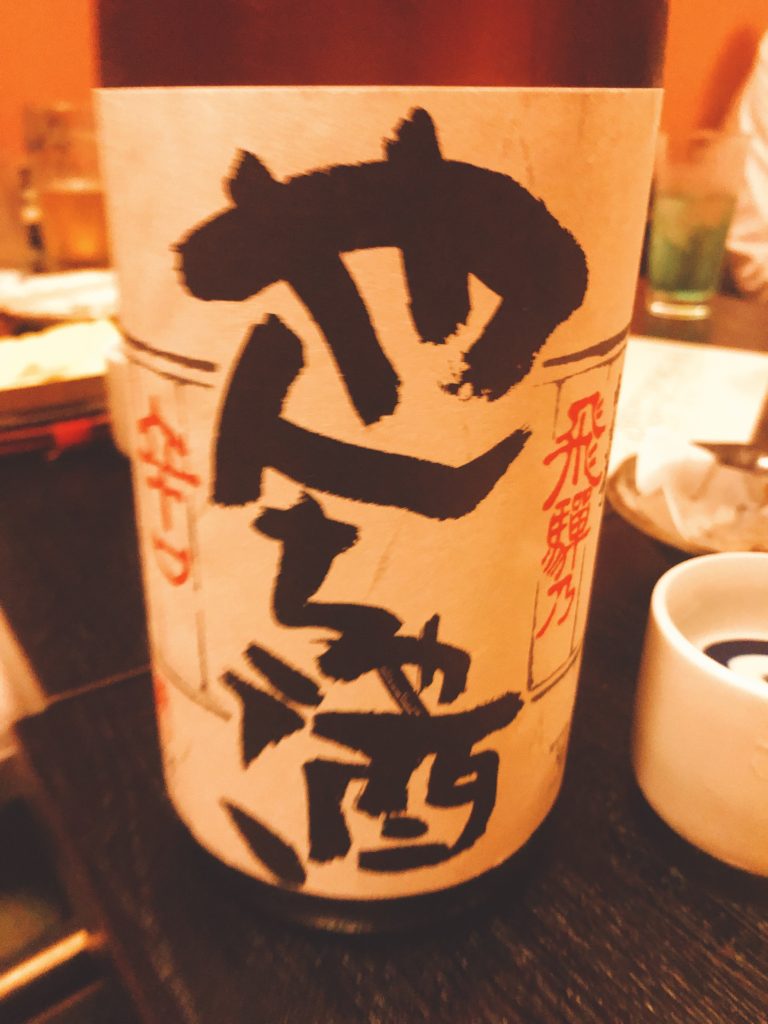 飛驒乃
やんちゃ酒
辛口